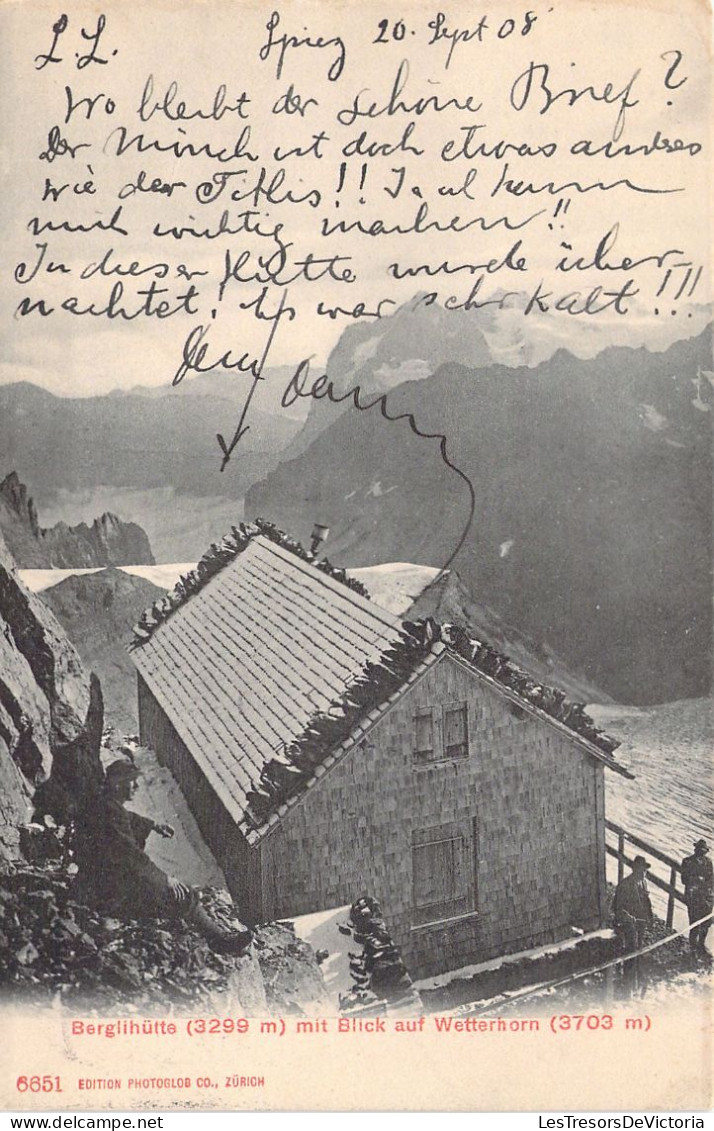 L. L. Spiez 20. Sept 08
Wo bleibt der schöne Brief?
Der Mönch ist doch etwas anderes
wie der Titlis!! Ja ul kann
mich wichtig machen!!
In dieser Hütte wurde über-
nachtet! Es war sehr kalt!!!
Dein
Berglihütte (3299 m) mit Blick auf Wetterhorn (3703 m)
6651 EDITION PHOTOGLOB CO., ZÜRICH
LesTresorsDeVictoria